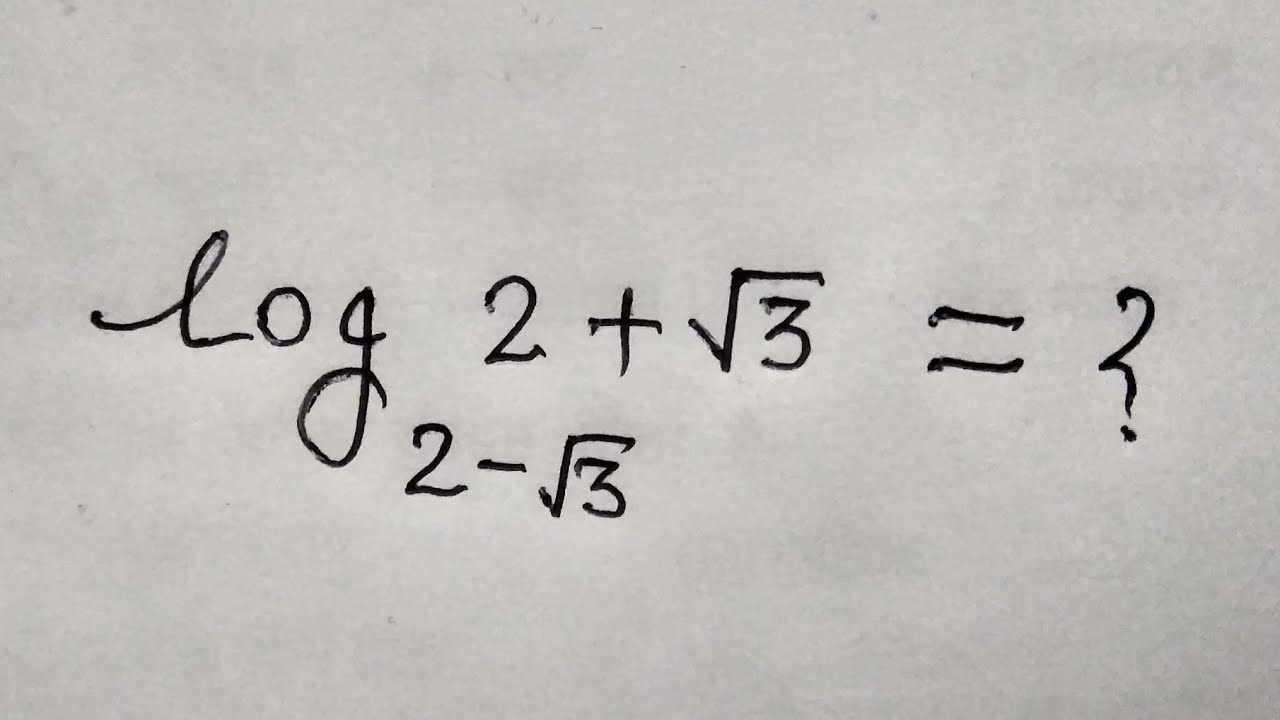 log 2 + √3 = ?
2 - √3